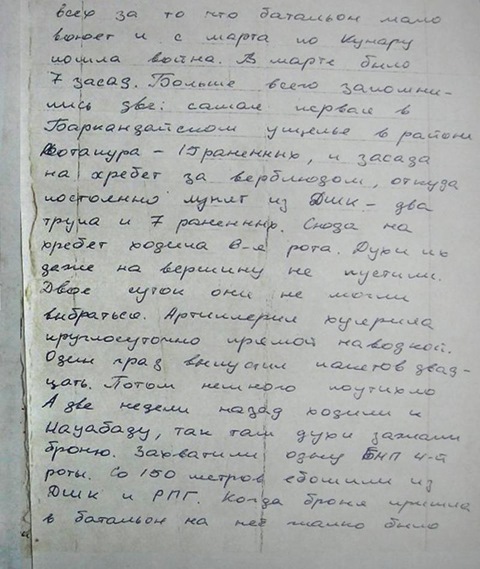 всех за то что батальон мало
воюет и с марта по Кунару
пошла война. В марте было
7 засад. Больше всего запомни-
лись две: самая первая в
Баркандайском ущелье в районе
Хотапура – 15 раненных, и засада
на хребет за верблюдом, откуда
постоянно лупят из ДШК – два
трупа и 7 раненных. Сюда на
хребет ходила 6-я рота. Духи их
даже на вершину не пустили.
Двое суток они не могли
выбраться. Артиллерия хуярила
круглосуточно прямой наводкой.
Один град выпустил пакетов двад-
цать. Потом немного поутихло
А две недели назад ходили к
Науабаду, так там духи зажали
броню. Захватили одну БМП 4-й
роты. Со 150 метров ебошили из
ДШК и РПГ. Когда броня пришла
в батальон на неё жалко было